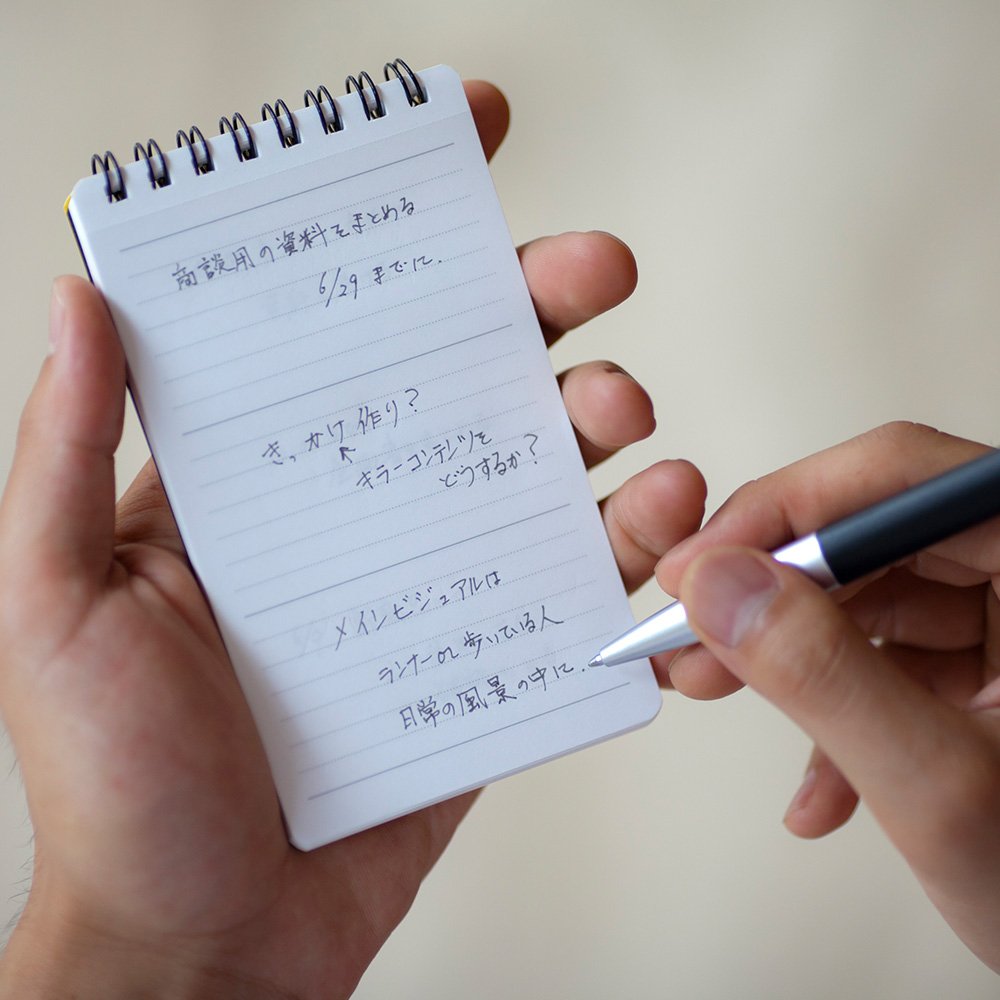 商談用の資料をまとめる
6/29 までに.
きっかけ作り?
↖
キラーコンテンツを
どうするか?
メインビジュアルは
ランナーor歩いている人
日常の風景の中に.